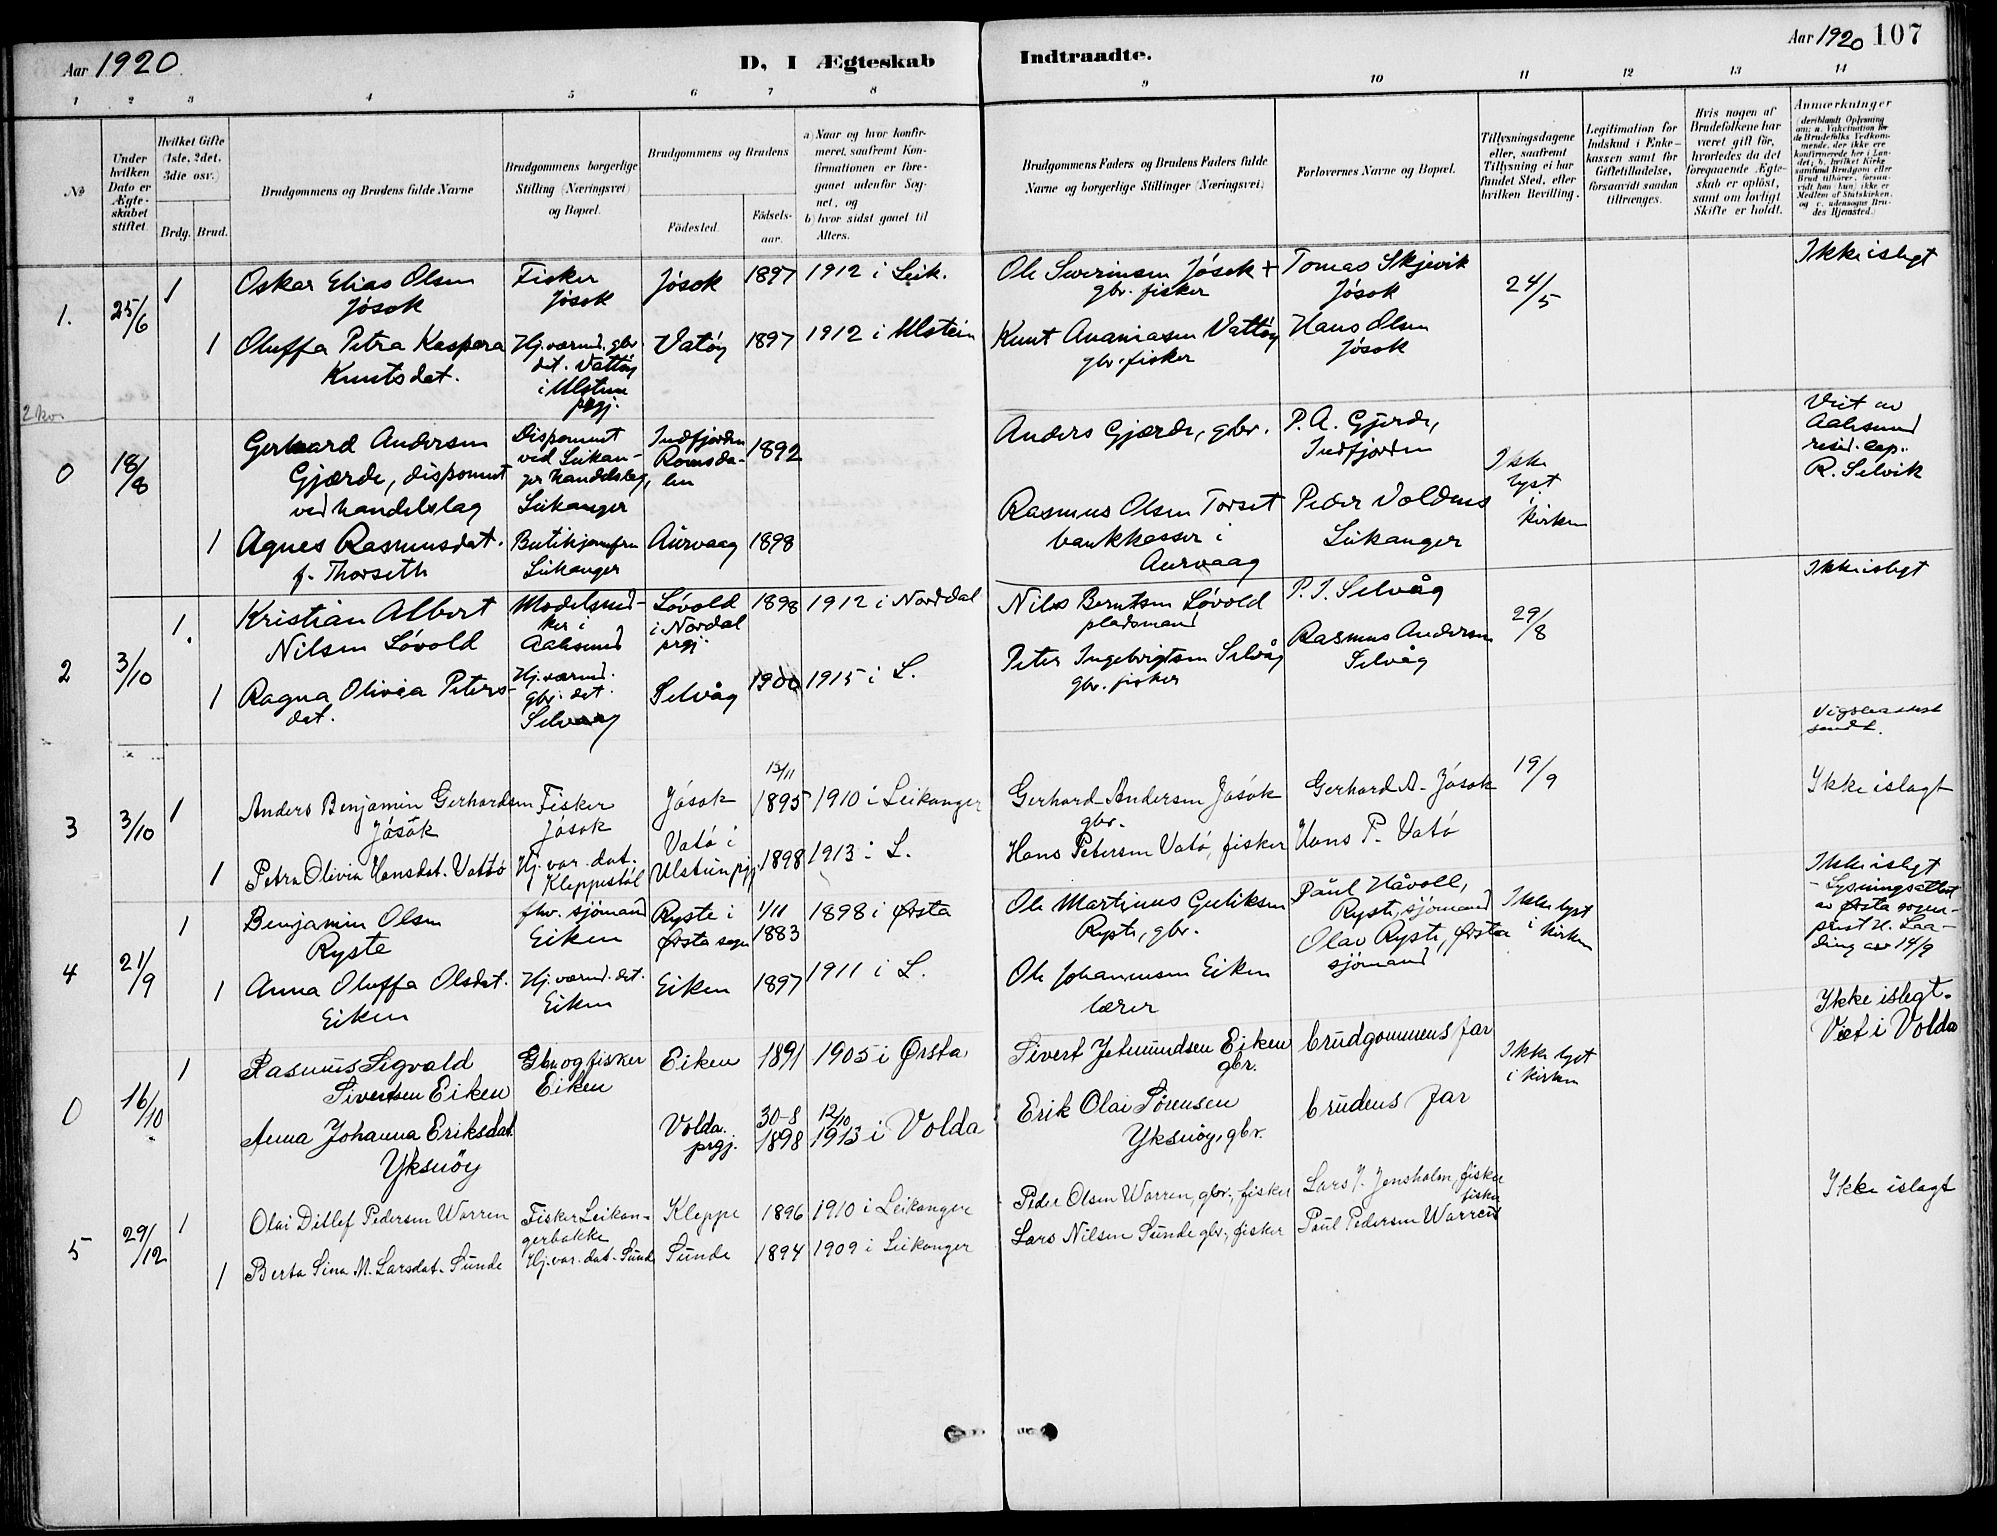 Aar 1920.
D, I Ægteskab
Indtraadte.
Aar 1920 107
1 2 3 4 5 6 7 8 9 10 11 12 13 14
No
Under hvilken Dato er Ægteskabet stiftet
Hvilket Gifte (1ste, 2det, 3die osv.)
Brdg. Brud.
Brudgommens og Brudens fulde Navne
Brudgommens borgerlige Stilling (Næringsvei) og Bopæl.
Brudgommens og Brudens
Fødested.
Fødselsaar.
a) Naar og hvor konfirmeret, saafremt Konfirmationen er foregaaet udenfor Sognet, og
b) hvor sidst gaaet til Alters.
Brudgommens Faders og Brudens Faders fulde Navne og borgerlige Stillinger (Næringsvei)
Forlovernes Navne og Bopæl.
Tillysningsdagene eller, saafremt Tillysning ei har fundet Sted, efter hvilken Bevilling.
Legitimation for Indskud i Enkekassen samt for Giftetilladelse, forsaavidt saadan tiltrænges.
Hvis nogen af Brudefolkene har været gift før, hvorledes da det foregaaende Ægteskab er opløst, samt om lovligt Skifte er holdt.
Anmærkninger
1. 25/6 1 Oskar Elias Olsen Fisker Jøsok 1897 1912 i Leik. Ole Severinsen Jøsok + Tomas Skjevik 24/5 Ikke i slegt
Jøsok Jøsok gbr. fisker Jøsok
1 Oluffa Petra Kaspara Hj.værend. gbr Vatøy 1897 1912 i Ulstein Knut Ananiasen Vattøy Hans Olsen
Knutsdat. dat. Vattøy gbr. fisker Jøsok
i Ulstein
prgj.
0 18/8 Gerhard Andersen Disponent Indfjorden 1892 Anders Gjærde, gbr. P. A. Gjerde, Ikke Viet av
Gjærde, disponent ved Leikan- Romsda- Indfjorden lyst Aalesund
ved handelslag ger handelslag, len i kirken resid. cap.
Leikanger R. Selvik
1 Agnes Rasmusdat. Butikjomfru Aurvaag 1898 Rasmus Olsen Torset Peder Voldnes
f. Thorseth Leikanger bankkasser i Leikanger
Aurvaag
2 3/10 1. Kristian Albert Modelsned- Løvold 1898 1912 i Norddal Nils Berntsen Løvold P. I. Selvåg 29/8 Ikke i slegt
Nilsen Løvold ker i i Nordal pladsmand
Aalesund prgj.
1 Ragna Olivia Peters- Hj.værend. Selvåg 1900 1915 i L. Peter Ingebrigtsen Selvåg Rasmus Andersen
dat. gbr. dat. gbr. fisker Selvåg
Selvaag
sendt.
3 3/10 1 Anders Benjamin Gerhardsen Fisker Jøsok 15/11 1895 1910 i Leikanger Gerhard Andersen Jøsok Gerhard A. Jøsok 19/9 Ikke i slagt
Jøsok Jøsok gbr.
1 Petra Olivia Hansdat. Vattø Hj. vær. dat. Vatø i 1898 1913 i L. Hans Petersen Vatø, fisker Hans P. Vatø
Kleppestøl Ulstein prgj.
4 21/9 1 Benjamin Olsen fhv. sjømand Ryste i 1/11 1898 i Ørsta Ole Martinus Guliksen Paul Håvoll, Ikke lyst Ikke i slegt
Ryste Eiken Ørsta sogn 1883 Ryste, gbr. Ryste, sjømand i kirken - Lysningsattest
Olav Ryste, Ørsta av Ørsta sogne-
sjømand prest H. Laa-
ding av 14/9
1 Anna Oluffa Olsdat. Hj. værend. dat. Eiken 1897 1911 i L. Ole Johannesen Eiken
Eiken Eiken lærer
0 16/10 1 Rasmus Sigvald Gbr. og fisker Eiken 1891 1905 i Ørsta Sivert Jetmundsen Eiken brudgommens far Ikke lyst Ikke i slegt.
Sivertsen Eiken Eiken gbr. i kirken Viet i Volda
Anna Johanna Eriksdat. Volda 30-8 12/10 Erik Olai Sørensen brudens far
Yksnøy prgj. 1898 1913 i Volda Yksnøy, gbr.
5 29/12 1 Olai Ditlef Pedersen Warren Fisker Leikan- Kleppe 1896 1910 i Leikanger Peder Olsen Warren, gbr., fisker Lars J. Jensholm, fisker Ikke i slagt
gerbakke
1 Berta Sina M. Larsdat. Sunde Hj. vær. dat. Sunde Sunde 1894 1909 i Leikanger Lars Nilsen Sunde gbr., fisker Paul Pedersen Warren fisker